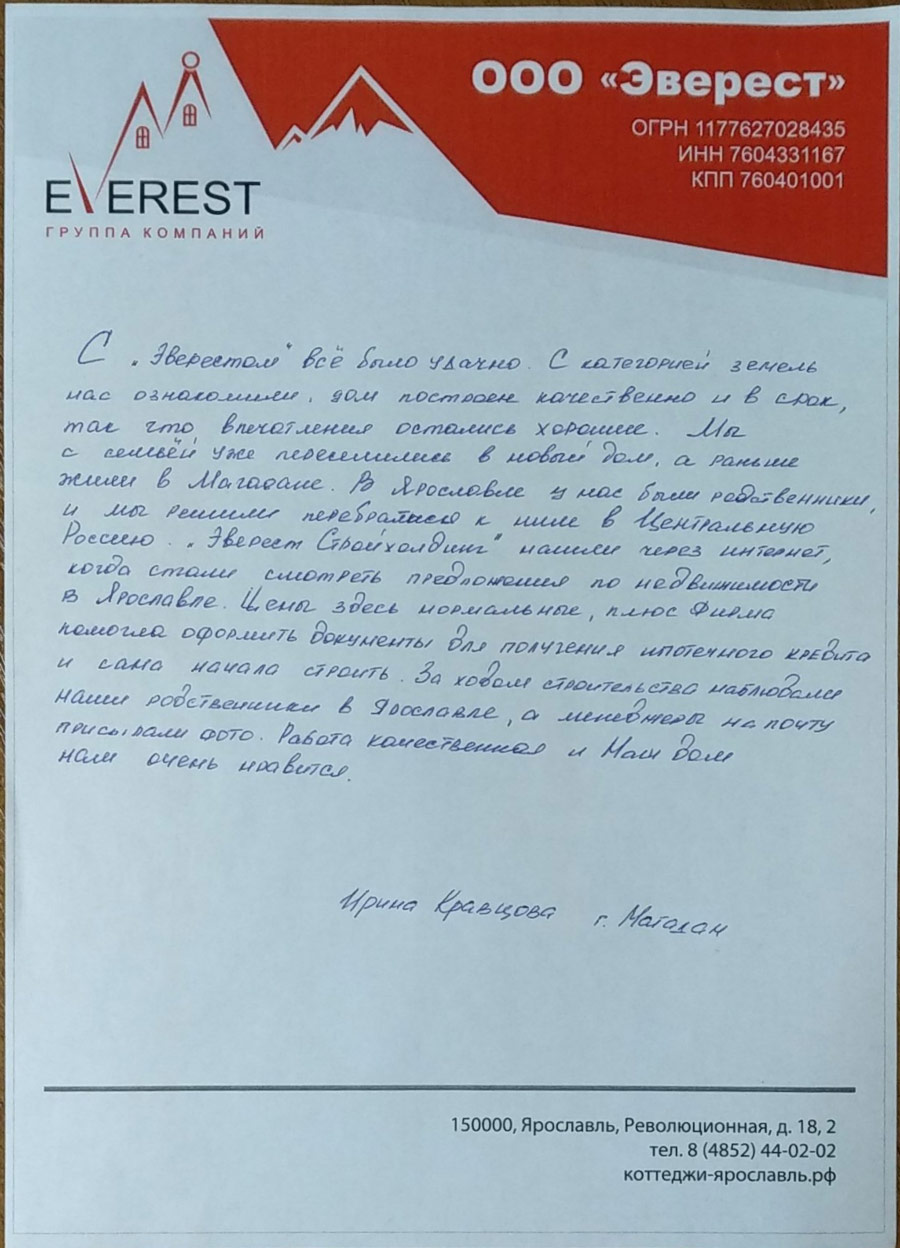 ООО «Эверест»
ОГРН 1177627028435
ИНН 7604331167
КПП 760401001
EVEREST
ГРУППА КОМПАНИЙ
С „Эверестом" всё было удачно. С категорией земель
нас ознакомили, дом построен качественно и в срок,
так что впечатления остались хорошие. Мы
с семьёй уже переселились в новый дом, а раньше
жили в Магадане. В Ярославле у нас были родственники,
и мы решили перебраться к ним в Центральную
Россию. „Эверест Стройхолдинг" нашли через интернет,
когда стали смотреть предложения по недвижимости
в Ярославле. Цены здесь нормальные, плюс Фирма
помогла оформить документы для получения ипотечного кредита
и сама начала строить. За ходом строительства наблюдали
наши родственники в Ярославле, а менеджеры на почту
присылали фото. Работа качественная и Наш дом
нам очень нравится.
Ирина Кравцова г. Магадан
150000, Ярославль, Революционная, д. 18, 2
тел. 8 (4852) 44-02-02
коттеджи-ярославль.рф